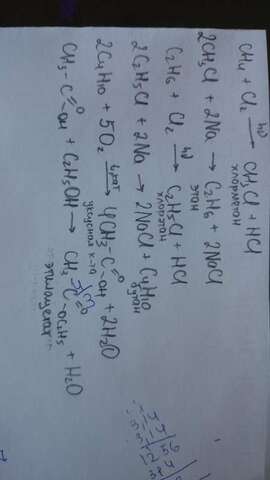 CH₄ + Cl₂ —hν→ CH₃Cl + HCl
хлорметан
2CH₃Cl + 2Na → C₂H₆ + 2NaCl
этан
C₂H₆ + Cl₂ —hν→ C₂H₅Cl + HCl
хлорэтан
2C₂H₅Cl + 2Na → 2NaCl + C₄H₁₀
бутан
2C₄H₁₀ + 5O₂ —t, кат→ 4CH₃-C=O-OH + 2H₂O
уксусная к-та
CH₃-C=O-OH + C₂H₅OH → CH₃-C=O-OC₂H₅ + H₂O
этилацетат